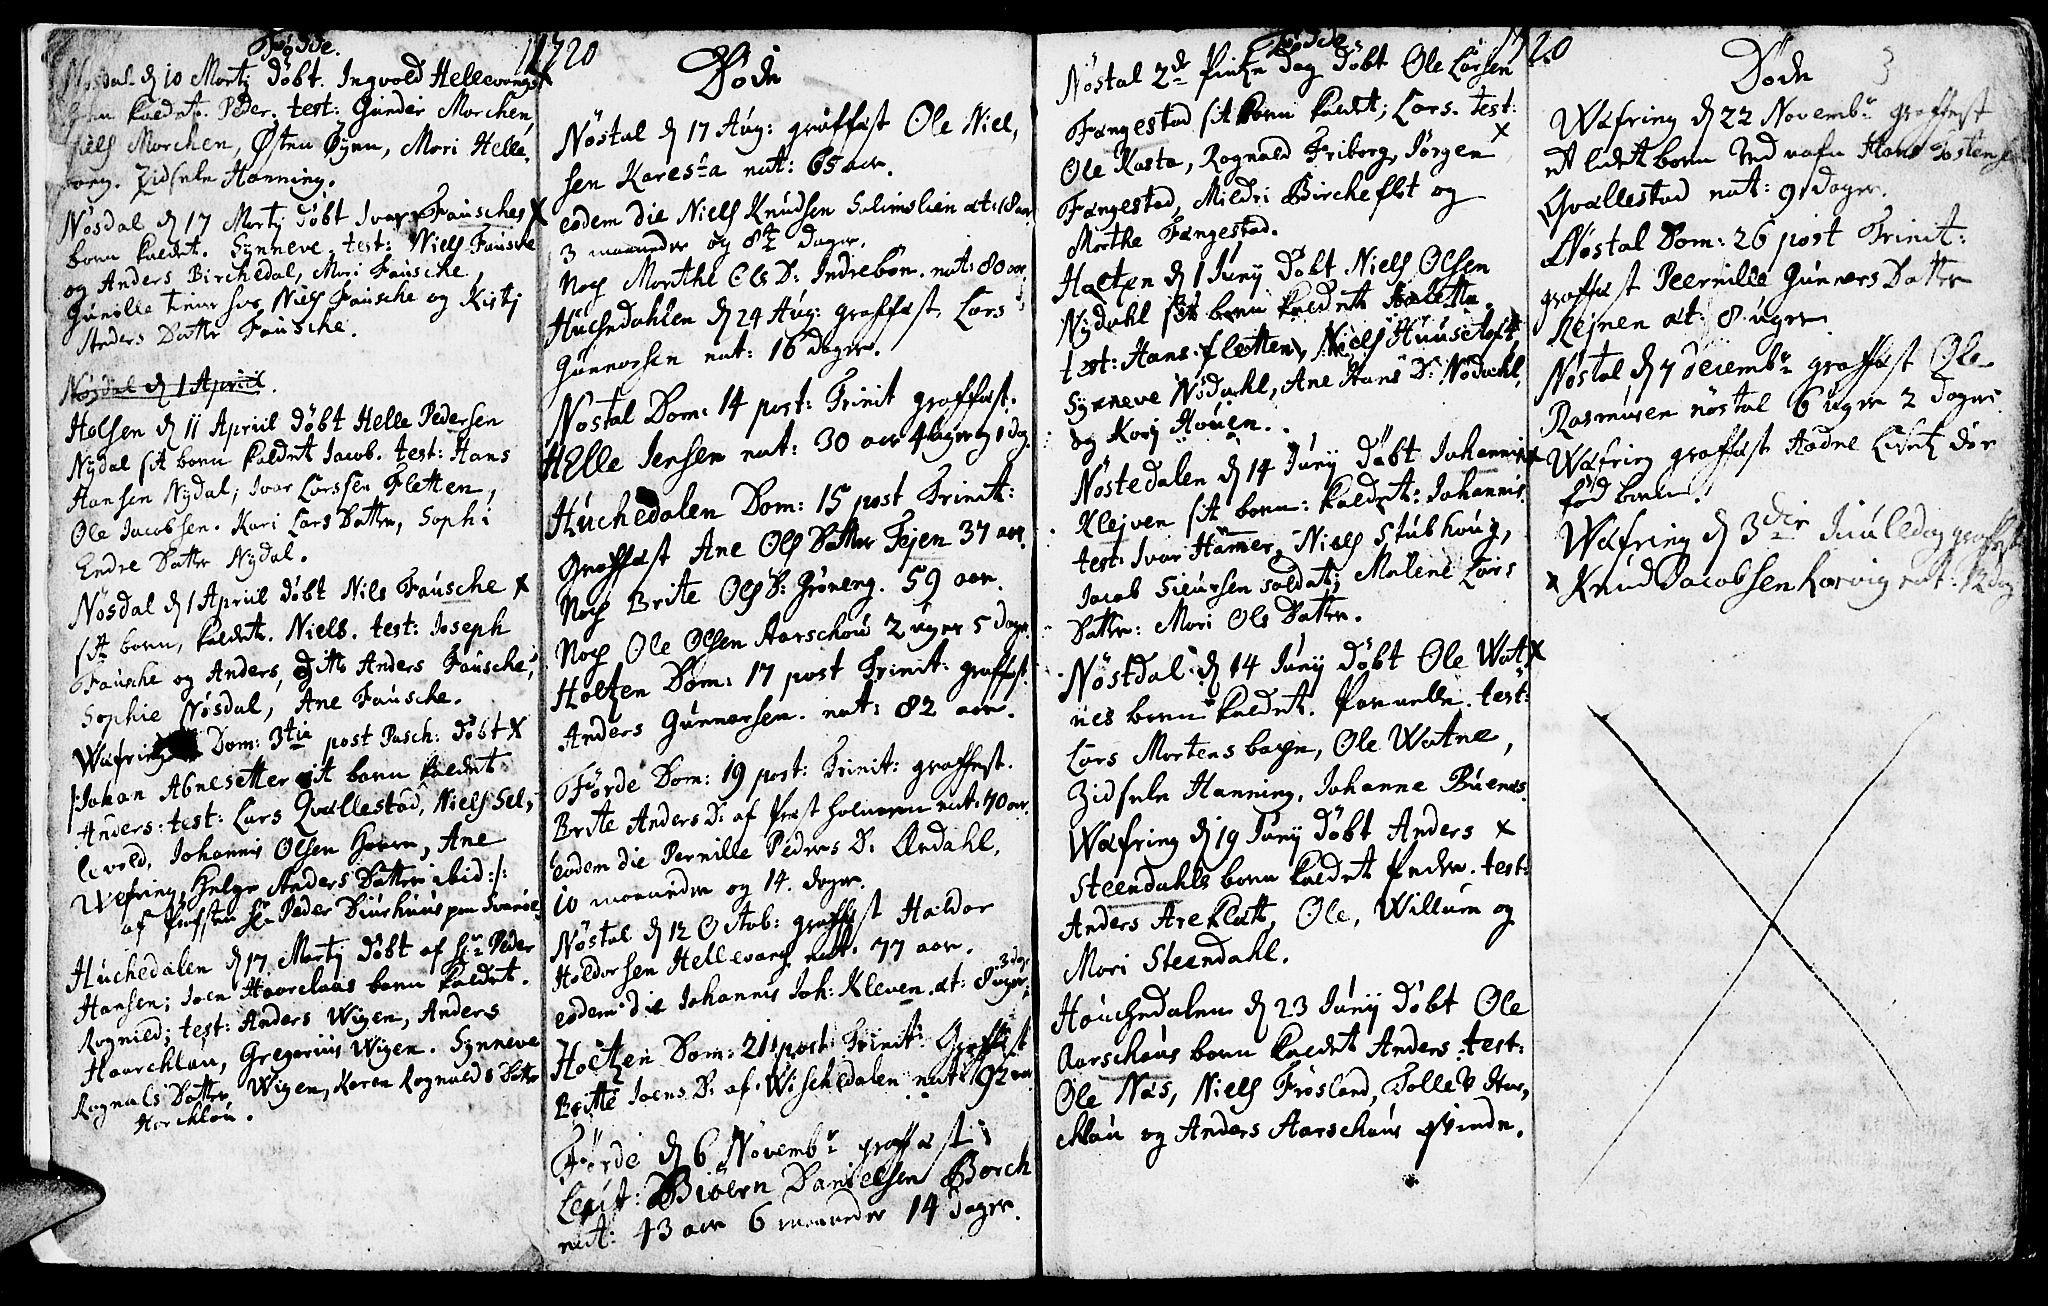 Födde.
1720
Nösdal d 10 Martj Döbt Ingvald Hellevangs
kaldet Peder. test: Gunder Morchen,
Niels Morchen, Østen Øÿen, Mari Helle,
vang. Zidsele Hanning.
Nösdal d 17 Martj Döbt Ivar Fausches X
barn kaldet. Synneve. test: Niels Fausche
og Anders Birchedal, Mari Fausche,
Gunille Niels Fausche og Kistj
Anders Datter Fausche.
Nösdal d 1 Apriil.
Holsen d 11 Apriil Döbt Helle Pedersen
Nydal sit barn kaldet Jacob. test: Hans
Hansen Nydal, Ivar Larssen Fletten,
Ole Jacobsen. Kari Lars Datter, Sophi
Endre Datter Nydal.
Nösdal d 1 Apriil Döbt Nils Fausche X
sit barn, kaldet. Niels. test: Joseph
Fausche og Anders, ditto Anders Fausche,
Sophie Nösdal, Ane Fausche.
Wefring Dom: 3tia post Pasch: Döbt X
Johan Abnesetter sit barn kaldet
Anders: test: Lars Qvallestad, Niels Sel,
levold, Johannis Olsen, Ane
Wefring, Helge Anders Datter ibid:/:
af Præsten Hr Peder Diurhuus
Huchedalen d 17 Martj Döbt af Hr Peder
Hansen; Joen Haarclaas barn kaldet.
Rognild; test: Anders Wigen, Anders
Haarchlau, Gregorius Wigen. Synneve
Rognals Datter Wigen, Karen Rognalds Datter
Horchlau.
Döde
Nöstal d 17 Aug: graffæst Ole Niel,
sen Karesta nat: 65 aar.
eodem die Niels Knudsen Solimslien æt: 18 aar
3 maaneder og 8te Dager.
Noch Marthe Ols D: Indrebön. nat: 80 aar
Huchedahlen d 24 Aug: graffæst Lars
Gunnarsen nat: 16 dager.
Nöstal Dom: 14 post: Trinit graffæst.
Helle Jensen nat: 30 aar 4 uger og 1 dag.
Huchedalen Dom: 15 post Trinit:
Graffæst Ane Ols Datter Tejen 37 aar.
Noch Brite Ols D: Gröneng. 59 aar.
Noch Ole Olsen Aarschou 2 uger 5 dage.
Holtzen Dom: 17 post Trinit: graffæst.
Anders Gunnarsen. nat: 82 aar.
Förde Dom: 19 post: Trinit: graffæst.
Brite Anders D: af Præst nat: 70 aar.
Eodem die Pernille Peders D: Ændahl,
10 maaneder og 14. dager.
Nöstal d 12 Octob: graffæst Haldor
Holdorsen Hellevang nat: 77 aar.
eodem die Johannis Joh: Kleven. æt: 8 uger 3 dag:
Holtzen Dom: 21 post: Trinit: Graffæst
Britte Joens D: af Wischedalen nat: 92 aar
Förde d 6 Novembr graffæst
Leut: Biöern Danielsen Borch
nat: 43 aar 6 maaneder 14 dager.
Födde
1720
Nöstal 2de Pintze dag Döbt Ole Larsen
Fængestad sit barn kaldet; Lars. test:
Ole Kasta, Rognald Friborg, Jörgen X
Fængestad, Mildri Bircheflt og
Morthe Fængestad.
Holtzen d 1 Junÿ Döbt Niels Olsen
Nydahl sit barn kaldet
test: Hans fletten, Niels Huusetoft,
Synneve Nödahl, Ane Hans D: Nödahl,
og Kari Houen.
Nöstedalen d 14 Junÿ Döbt Johannis X
Klejven sit barn: kaldet: Johannis.
test: Ivar Hamer, Niels Stubhoug,
Jacob Sieursen soldat; Malene Lars
Datter: Mari Ols Datter.
Nöstdal d 14 Junÿ Döbt Ole Wat X
nes barn kaldet. test:
Lars Mortensbøyen, Ole Watne,
Zidsele Hanning, Johanne Buenes.
Wæfring d 19 Junÿ Döbt Anders X
Steendahls barn kaldet Peder. test:
Anders Areklætt, Ole, Willum og
Mari Steendahl.
Houchedalen d 23 Junÿ Döbt Ole
Aarschous barn kaldet Anders. test:
Ole Nas, Niels Frösland, Tollev Haar,
chlau og Anders Aarschous qvinde.
3
Döde
Wæfring d 22 Novembr graffæst
et lidet barn Ved nafn Hans Jostens
Qvallestad nat: 9 dager.
Nöstal Dom: 26 post Trinit:
graffæst Peernille Gunners Datter
Rejnen æt: 8 uger
Nöstal d 7 decembr graffæst Ole
Rasmusen nöstal 6 uger 2 dager
Wæfring graffæst Aadne död
föd barn.
Wæfring d 3die Juuledag graffæst
X Knud Jacobsen Horvig nat: 12 dag